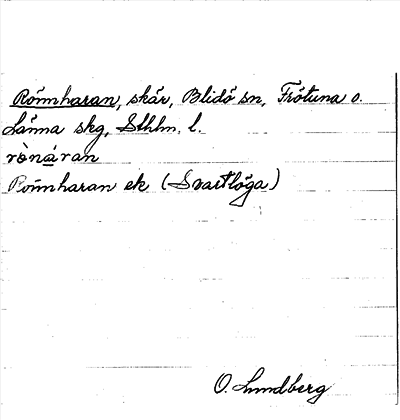 Rönnharan, skär, Blidö sn, Frötuna o.
Länna skg, Sthlm. l.
rònáran
Rönnharan ek (Svartlöga)
O. Lundberg